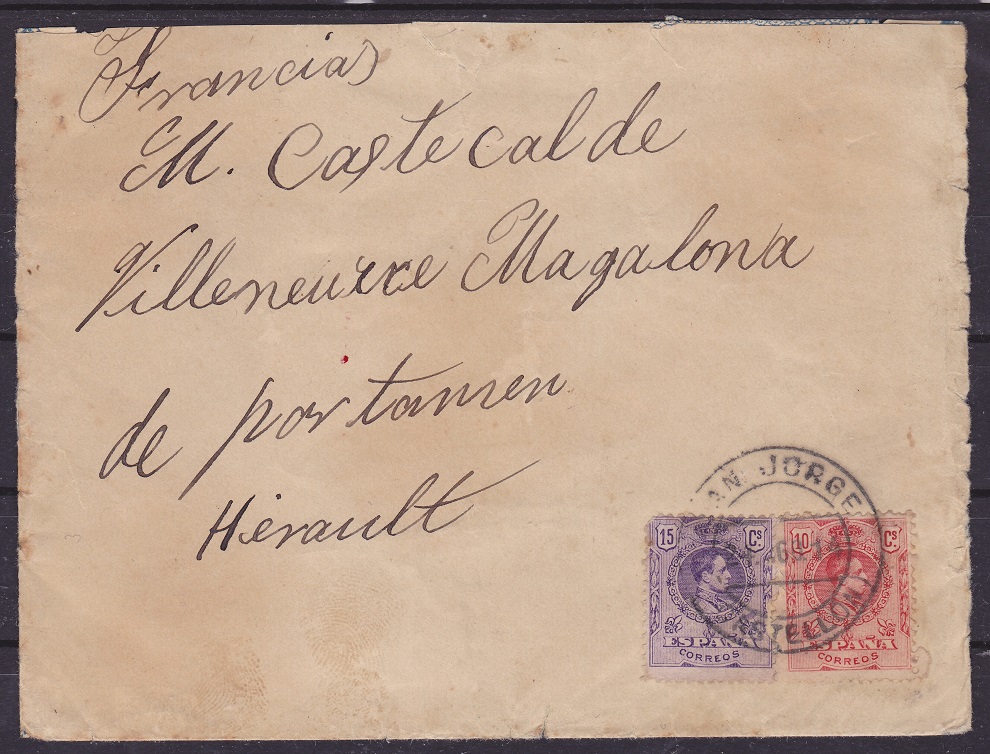 Francia
M. Castecalde
Villeneuve Magalona
de portamen
Hérault
SAN JORGE
CASTELLON
15 Cs
ESPAÑA
CORREOS
10 Cs
ESPAÑA
CORREOS